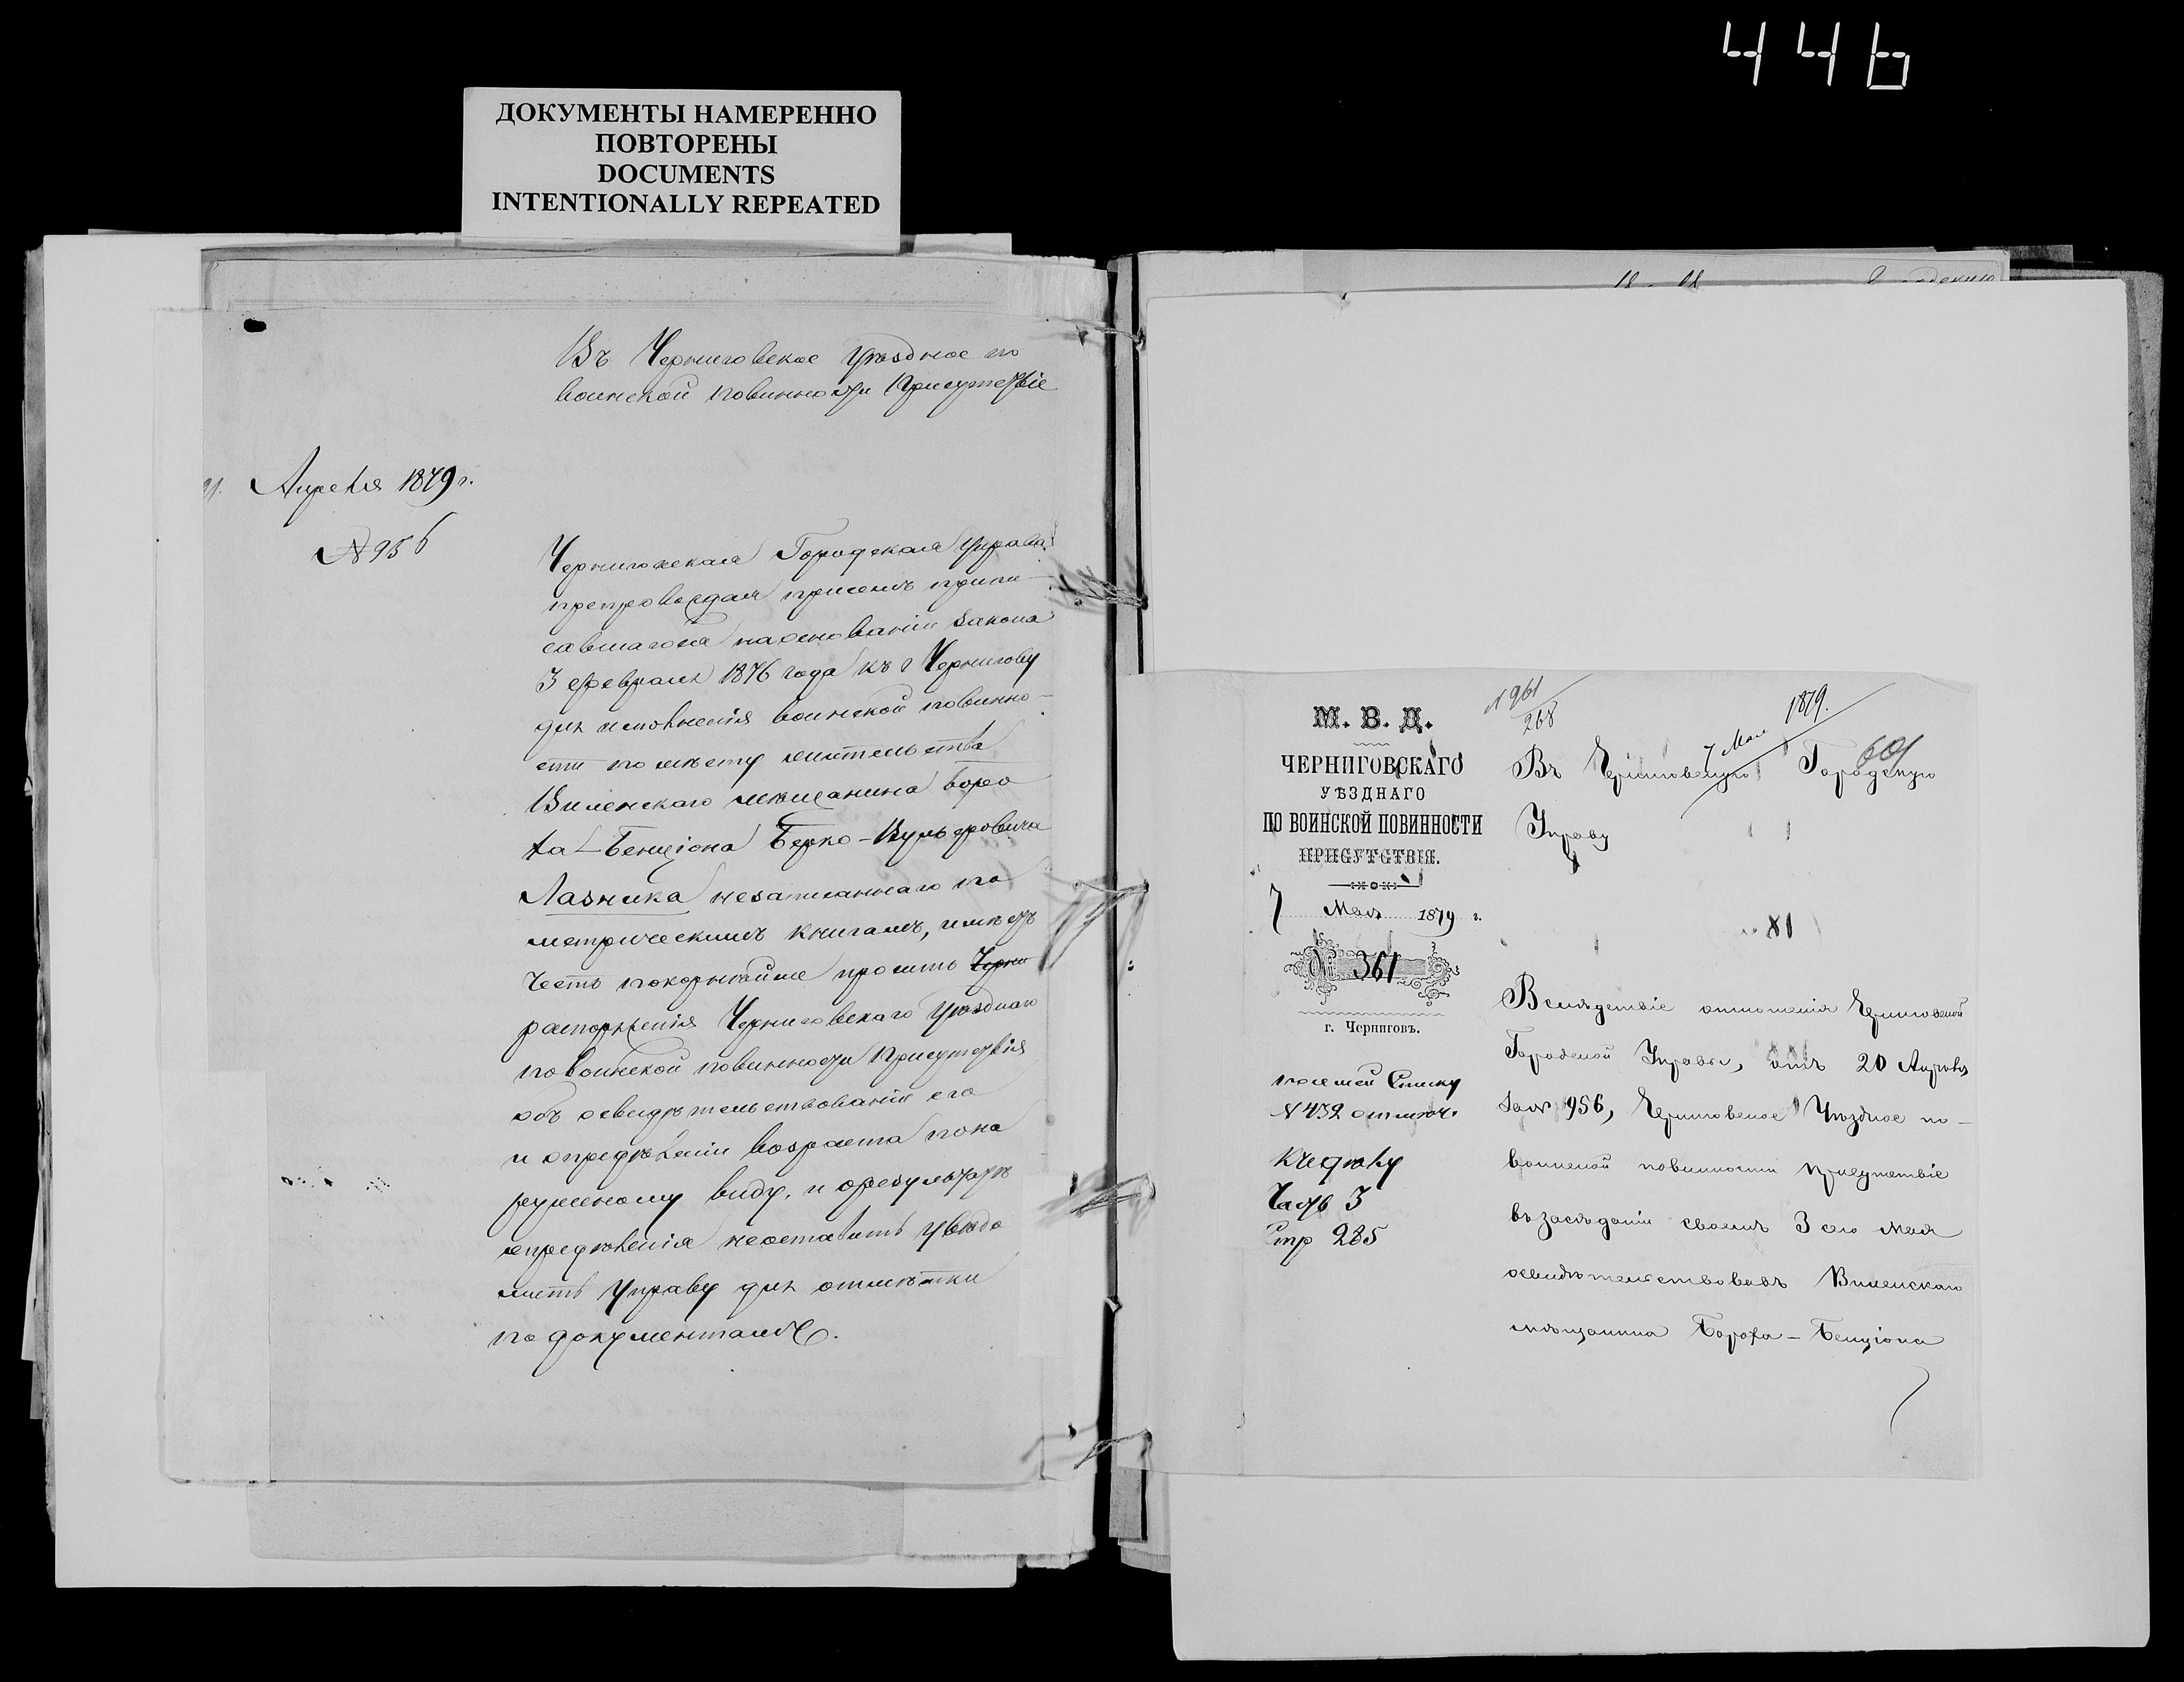 446
ДОКУМЕНТЫ НАМЕРЕННО
ПОВТОРЕНЫ
DOCUMENTS
INTENTIONALLY REPEATED
Въ Черниговское Уѣздное по
воинской повинности Присутствіе
Апрѣля 1879 г.
№ 956
Черниговская Городская Управа
препровождая присемъ припи-
савшагося наоснованіи закона
3 февраля 1876 года къ г Чернигову
для исполненія воинской повинно-
сти по мѣсту жительства
Виленскаго мѣщанина Боро
ха-Бенціона Берко-Вульфовича
Лазника незаписаннаго по
метрическимъ книгамъ, имѣетъ
честь покорнѣйше просить Черни
распоряженія Черниговскаго Уѣзднаго
повоинской повинности Присутствія
объ освидѣтельствованіи его
и опредѣленіи возраста пона
ружному виду, и орезультатѣ
опредѣленія неоставить увѣдо
мить Управу для отмѣтки
по документамъ.
М. В. Д.
ЧЕРНИГОВСКАГО
УѢЗДНАГО
ПО ВОИНСКОЙ ПОВИННОСТИ
ПРИСУТСТВІЯ.
7 Мая 1879 г.
№ 361
г. Черниговъ.
№ 961
268
7 Мая 1879.
601
Въ Черниговскую Городскую
Управу
81
Вслѣдствіе отношенія Черниговской
Городской Управы, отъ 20 Апрѣля
за№ 956, Черниговское Уѣздное по-
воинской повинности Присутствіе
въ засѣданіи своемъ 3 сего Мая
освидѣтельствовавъ Виленскаго
мѣщанина Бороха-Бенціона
Списку
№ 432
Къ дѣлу
Часть 3
Стр 285